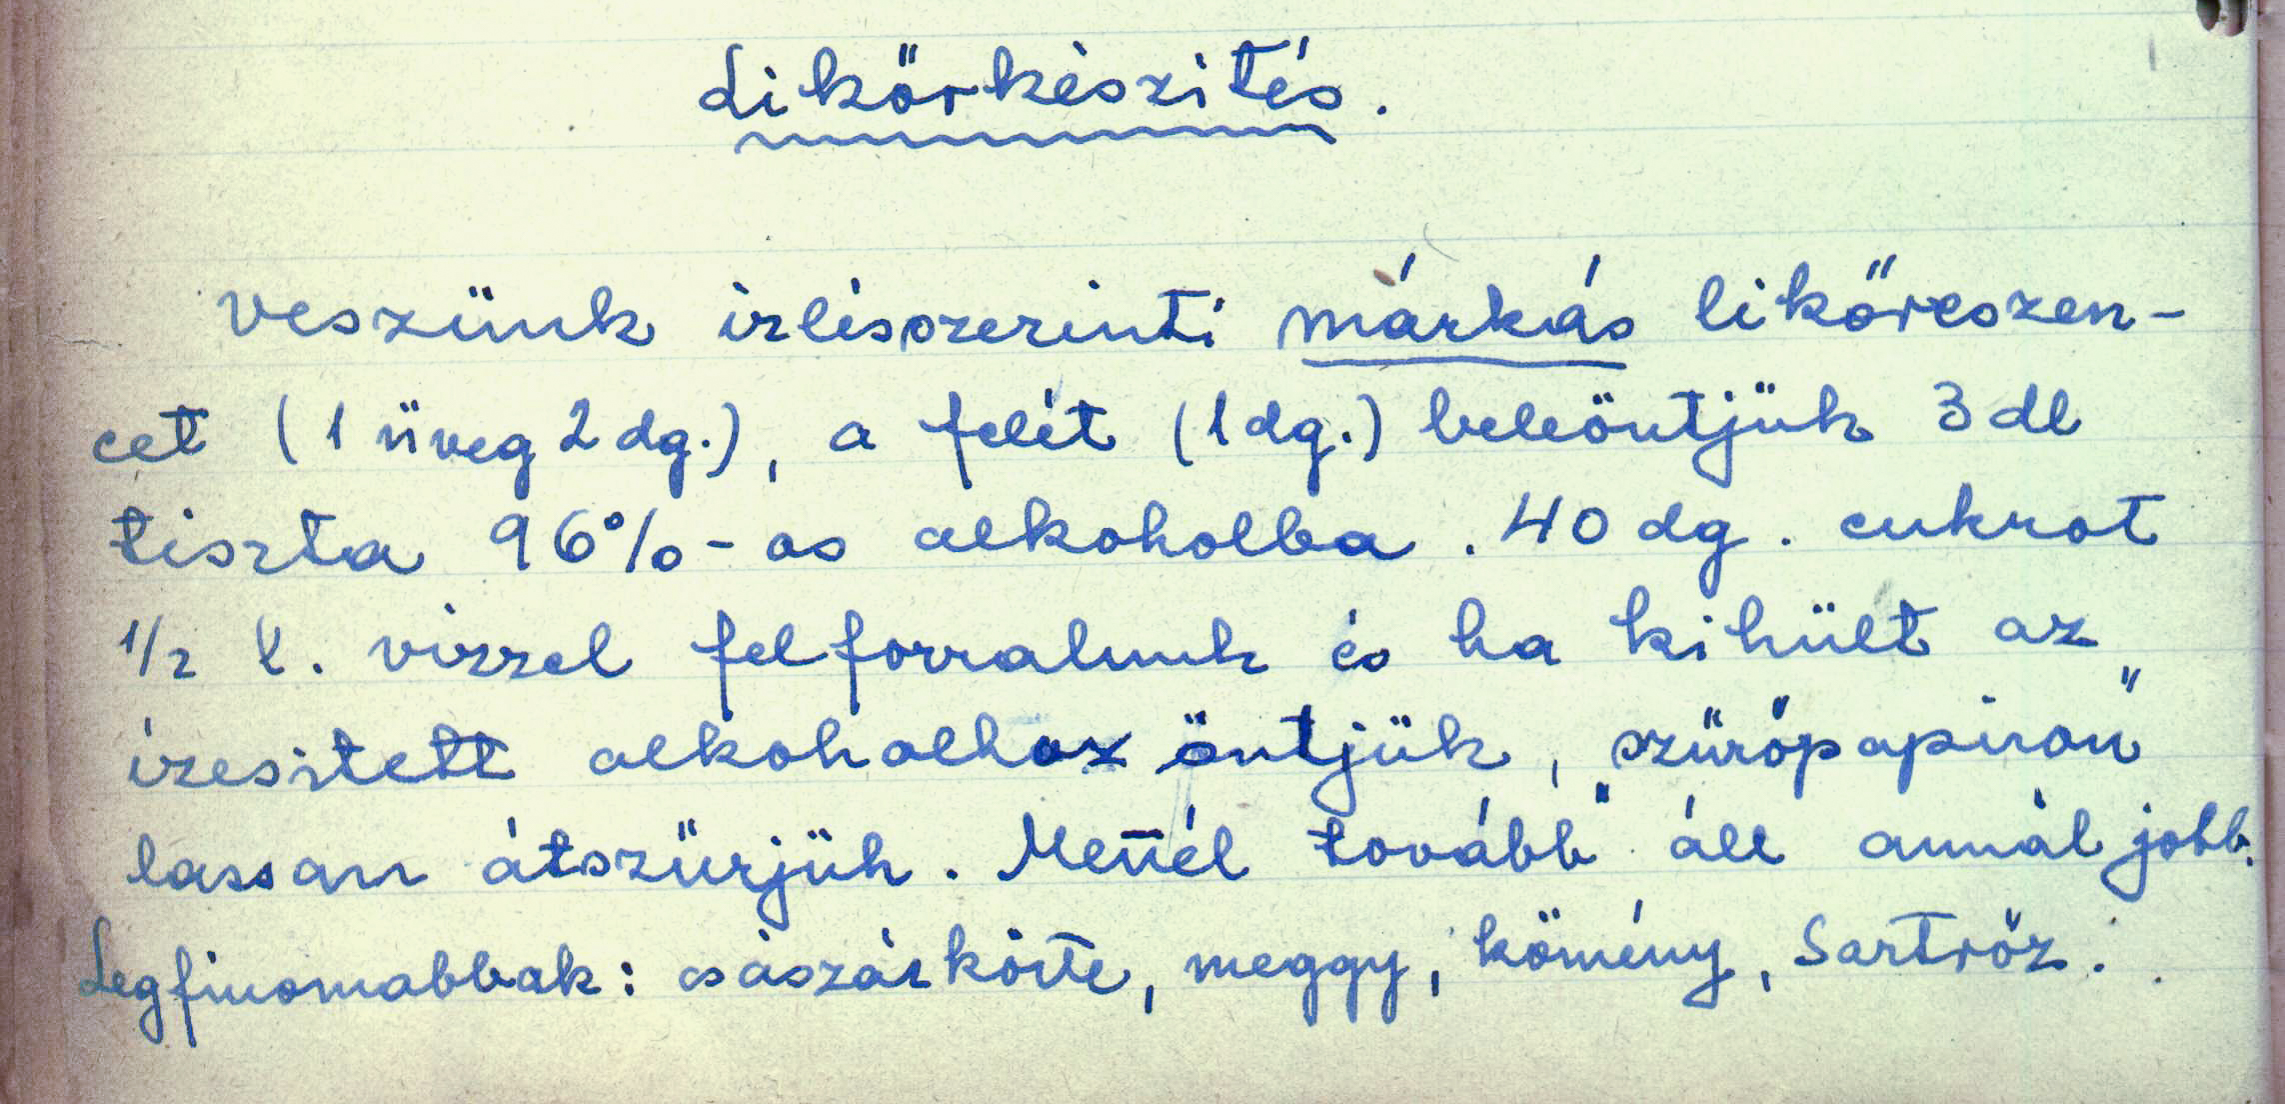 Likőrkészités.
Veszünk izlésszerinti márkás likőreszen-
cet (1 üveg 2 dg.), a felét (1 dg.) beleöntjük 3 dl
tiszta 96%-os alkoholba. 40 dg. cukrot
1/2 l. vizzel felforralunk és ha kihült az
izesitett alkoholhoz öntjük, "szűrőpapiron"
lassan átszűrjük. Mennél tovább áll annál jobb.
Legfinomabbak: császárkörte, meggy, kömény, Sartröz.